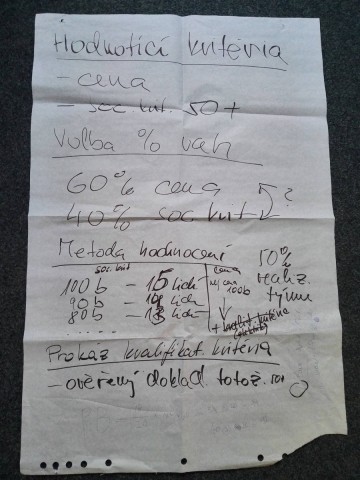 Hodnotící kritéria
- cena
- soc. krit. 50+
Volba % vah
60% cena
40% soc. krit ?
Metoda hodnocení
soc. krit
100 b - 15 lidí
90 b - 14 lidí
80 b - 13 lidí
......
cena
100b
50%
realiz.
týmu
Prokáz kvalifikat. kritéria
- ověřený doklad totož.